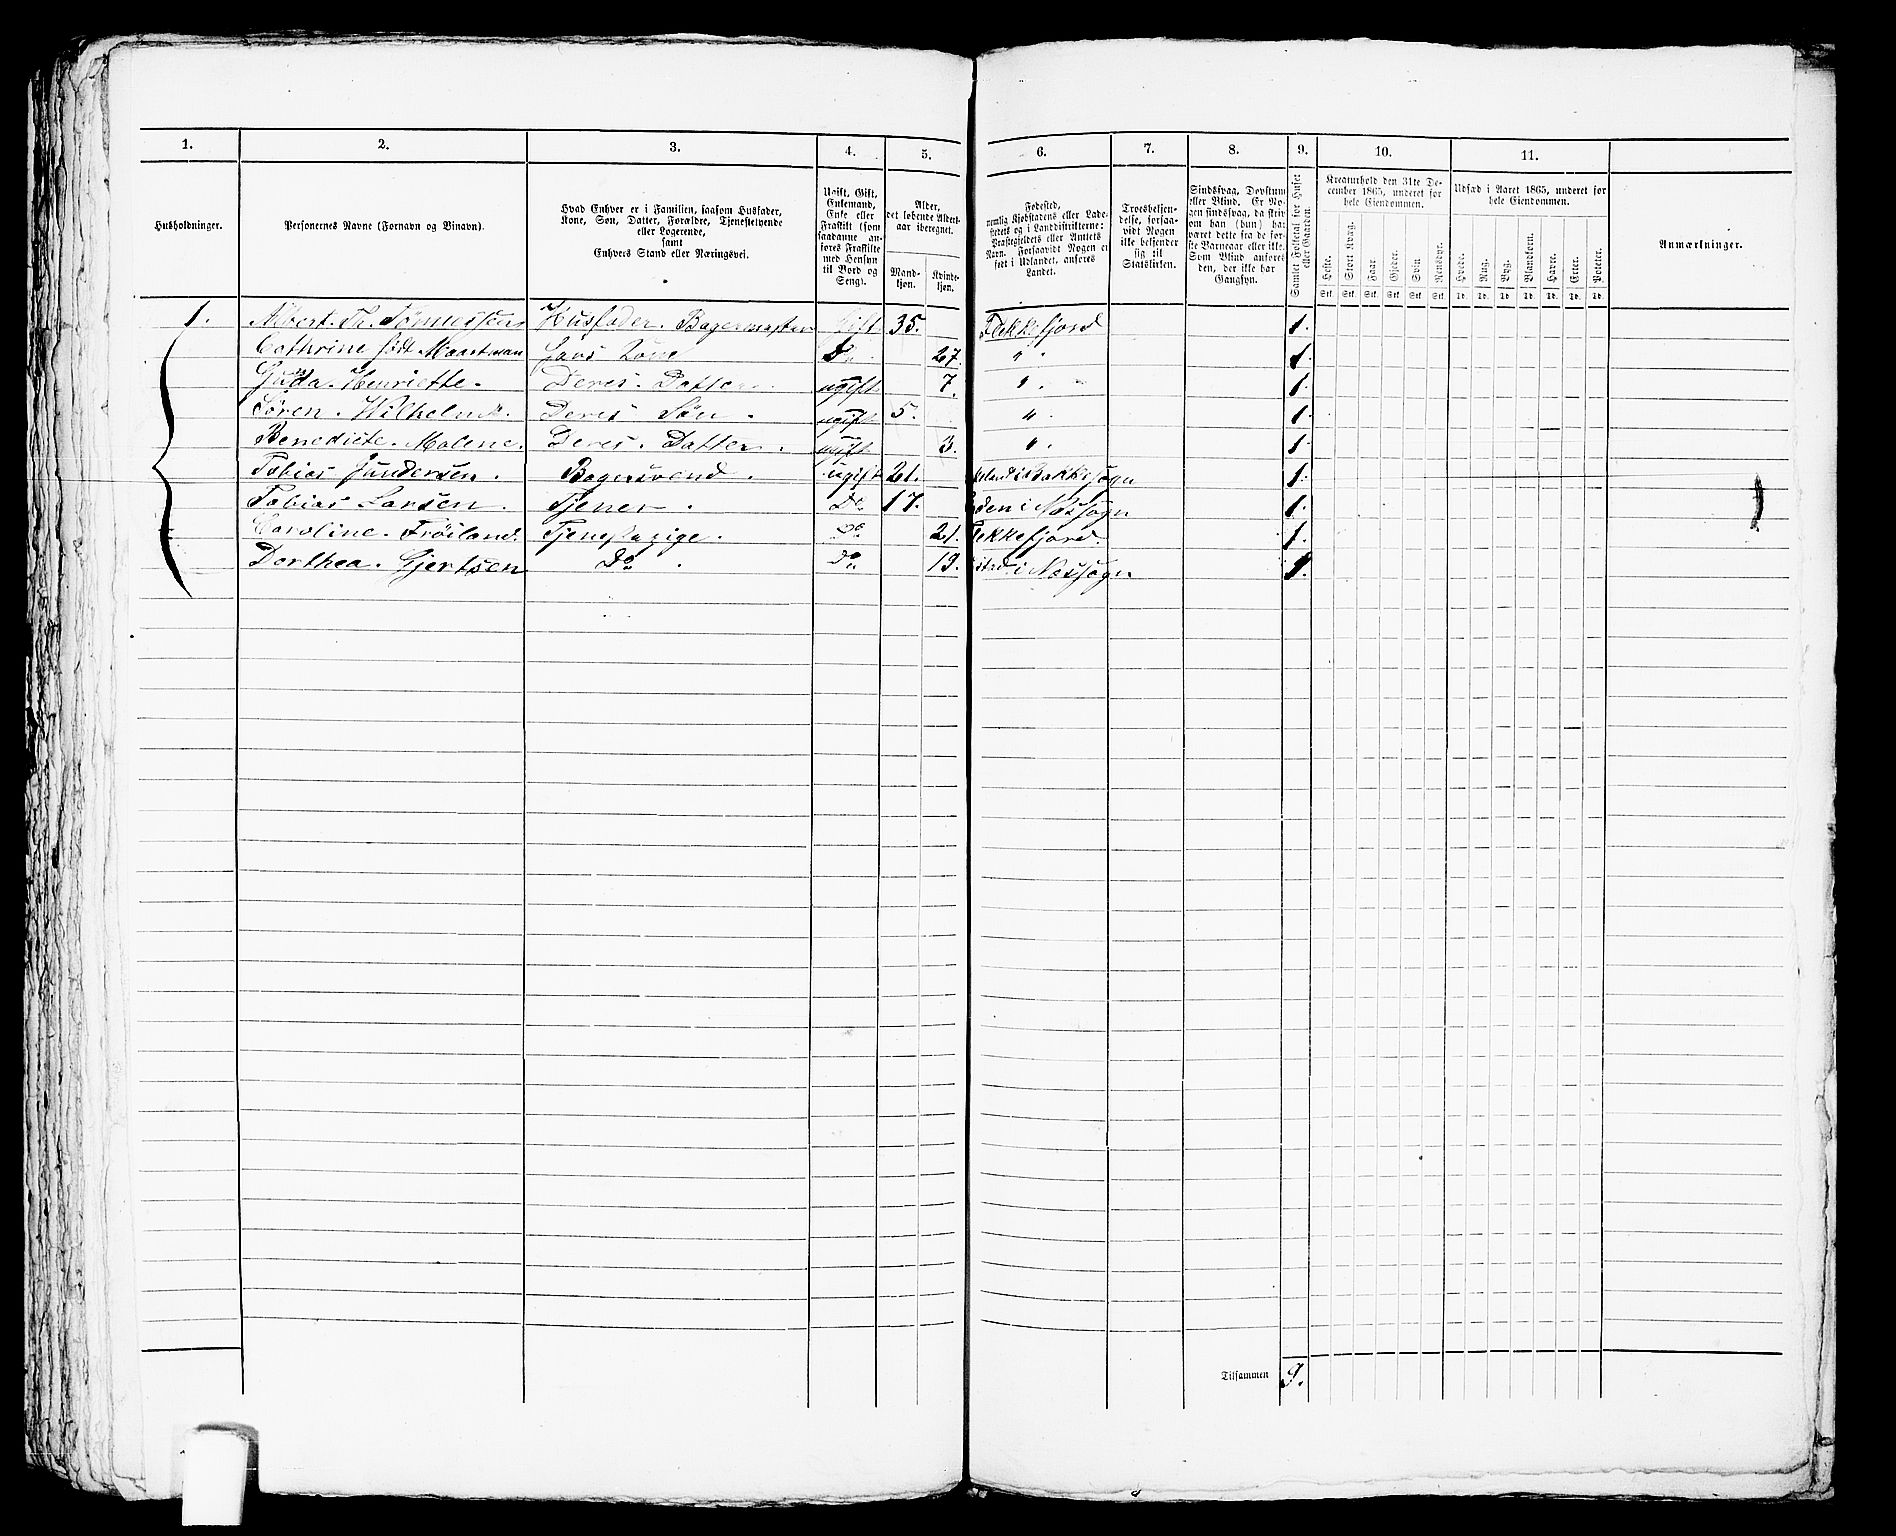 1. 2. 3. 4. 5. 6. 7. 8. 9. 10. 11.
Husholdninger.
Personernes Navne (Fornavn og Binavn).
Hvad Enhver er i Familien, saasom Husfader,
Kone, Søn, Datter, Forældre, Tjenestetyende
eller Logerende,
samt
Enhvers Stand eller Næringsvei.
Ugift, Gift,
Enkemand,
Enke eller
Fraskilt (som
saadanne anføres Fraskilte
med Hensyn
til Bord og
Seng).
Alder,
det løbende Aldersaar iberegnet.
Mandkjøn.
Kvindekjøn.
Fødested,
nemlig Kjøbstadens eller Ladestedets og i Landdistrikterne:
Præstegjeldets eller Amtets
Navn. Forsaavidt Nogen er
født i Udlandet, anføres
Landet.
Troesbekjendelse, forsaavidt Nogen
ikke bekjender
sig til
Statskirken.
Sindssvag, Døvstum
eller Blind. Er Nogen sindssvag, da skrives om han (hun) har
været dette fra de første Barneaar eller ikke.
Som Blind anføres
den, der ikke har
Gangsyn.
Samlet Folketal for Huset
eller Gaarden.
Kreaturhold den 31te December 1865, underet for
hele Eiendommen.
Heste. Stort Kvæg. Faar. Gjeder. Svin Rensdyr.
Stk. Stk. Stk. Stk. Stk. Stk.
Udsæd i Aaret 1865, underet for
hele Eiendommen.
Hvede. Rug. Byg. Blandkorn. Havre. Erter. Poteter.
Td. Td. Td. Td. Td. Td. Td.
Anmærkninger.
1. Albert. Th. Husfader. Bagermester Gift 35. Flekkefjord 1.
Cathrine født Hans Kone Do 27. " 1.
Henriette. Deres. Datter ugift 7. " 1.
Søren. Wilhelm. Deres Søn. ugift 5. " 1.
Benedicte. Malene. Deres. Datter. ugift 3. " 1
Tobias Bagersvend. ugift 21. i Bakkesogn 1.
Tobias Larsen. Tjener. Do 17. i Næssogn 1.
Caroline. Frøiland. Tjenestepige. Do 21. Flekkefjord. 1.
Dorthea. Gjertsen Do. Do. 19. i Næssogn 1.
Tilsammen 9.